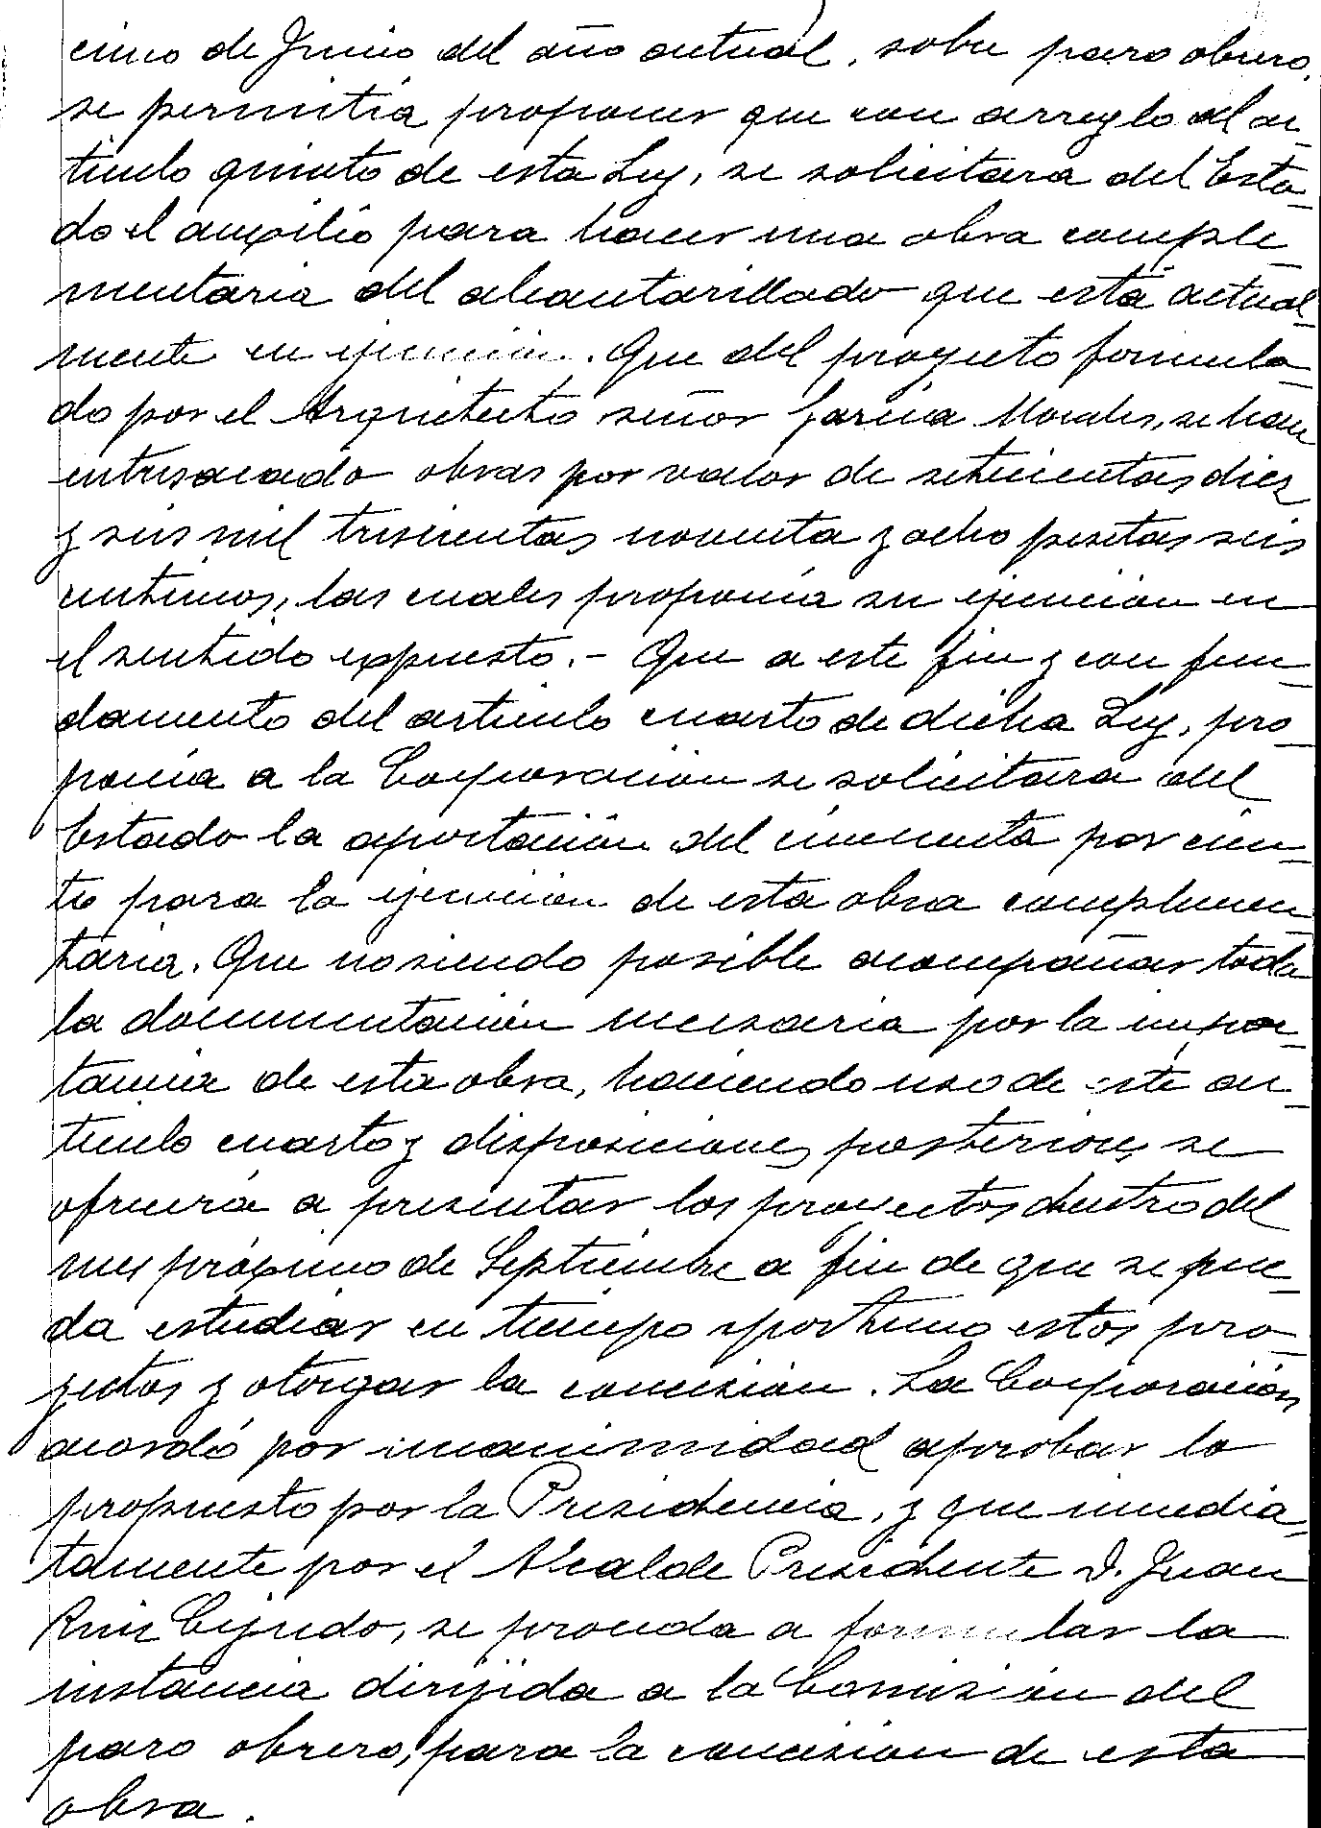 cinco de Junio del año actual, sobre paro obrero,
se permitía proponer que con arreglo al ar_
tículo quinto de esta Ley, se solicitara del Esta_
do el auxilio para hacer una obra comple_
mentaria del alcantarillado que está actual_
mente en ejecución. Que del proyecto formula_
do por el Arquitecto señor García Morales, se han
entresacado obras por valor de setecientas diez
y seis mil trescientas noventa y ocho pesetas seis
centimos, las cuales proponía su ejecución en
el sentido expuesto.- Que a este fin y con fun_
damento del articulo cuarto de dicha Ley, pro_
ponía a la Corporación se solicitara del
Estado la aportación del cincuenta por cien_
to para la ejecución de esta obra complemen_
taria. Que no siendo posible acompañar toda
la documentación necesaria por la impor_
tancia de esta obra, haciendo uso de este ar_
ticulo cuarto y disposiciones posteriores se
ofrecerá a presentar los proyectos dentro del
mes próximo de Septiembre a fin de que se pue_
da estudiar en tiempo oportuno estos pro_
yectos y otorgar la concesión. La Corporación
acordó por unanimidad aprobar lo
propuesto por la Presidencia, y que inmedia_
tamente por el Alcalde Presidente D. Juan
Ruiz Cejudo, se proceda a formular la
instancia dirijida a la Comisión del
paro obrero, para la concesion de esta
obra.